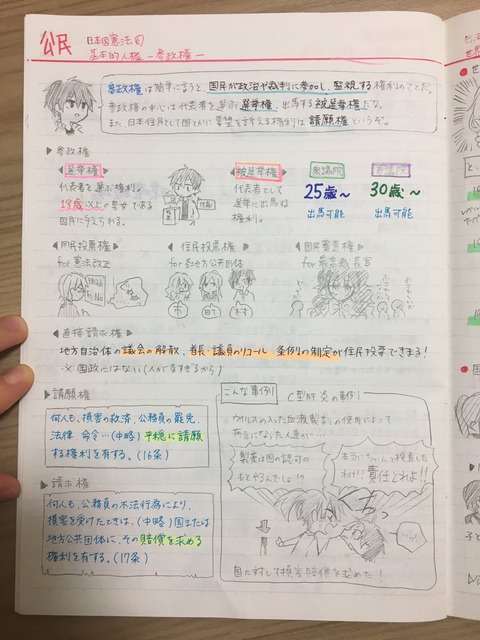 公民
日本国憲法④
基本的人権 -参政権-
参政権は簡単に言うと、国民が政治や裁判に参加し、監視する権利のことだ。
参政権の中心は代表者を選ぶ選挙権、出馬する被選挙権だな。
また日本住民として国とかに要望を訴える権利は請願権というぞ。
▶参政権
◀選挙権▶
代表者を選ぶ権利。
18歳以上の男女である
国民に与えられる。
◀被選挙権▶
代表者として
選挙に出馬する
権利。
衆議院
25歳〜
出馬可能
参議院
30歳〜
出馬可能
◀国民投票権▶
for 憲法改正
◀住民投票権▶
for 各地方公共団体
◀国民審査権▶
for 最高裁長官
市
町
村
◀直接請求権▶
地方自治体の議会の解散、首長・議員のリコール、条例の制定が住民投票できる!
※国政にはない(人が多すぎるから)
▶請願権
何人も、損害の救済、公務員の罷免、
法律 命令…(中略)平穏に請願
する権利を有する。(16条)
▶請求権
何人も、公務員の不法行為により、
損害を受けたときは、(中略)国または
地方公共団体に、その賠償を求める
権利を有する。(17条)
こんな事例
C型肝炎の事例
ウイルスの入った血液製剤の使用によって
病気になった人達が…
製薬は国の認可の
もとやるんでしょ!?
本当にちゃんと検査した
わけ!?責任とれよ!!
国に対して損害賠償を求めた!